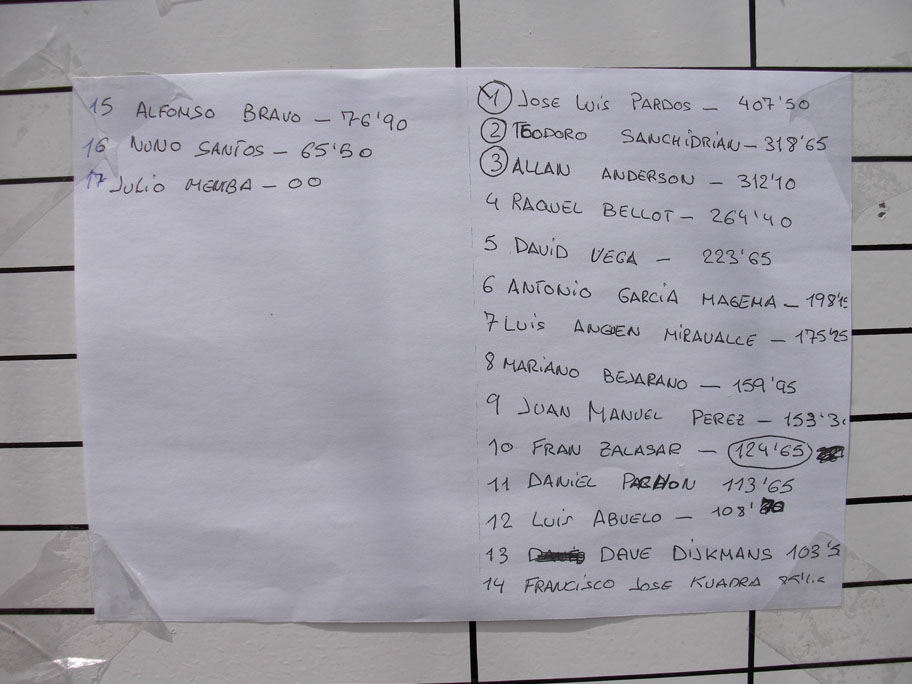 15 ALFONSO BRAVO - 76'90
16 NUNO SANTOS - 65'50
17 JULIO MEMBA - 00
1 JOSE LUIS PARDOS - 407'50
2 TEODORO SANCHIDRIAN - 318'65
3 ALLAN ANDERSON - 312'10
4 RAQUEL BELLOT - 264'40
5 DAVID VEGA - 223'65
6 ANTONIO GARCIA MAGEMA -
7 LUIS ANGUEN MIRAVALLE - 175'25
8 MARIANO BEJARANO - 159'95
9 JUAN MANUEL PEREZ -
10 FRAN ZALASAR - 124'65
11 DANIEL 113'65
12 LUIS ABUELO -
13 DAVE DIJKMANS
14 FRANCISCO JOSE KUADRA